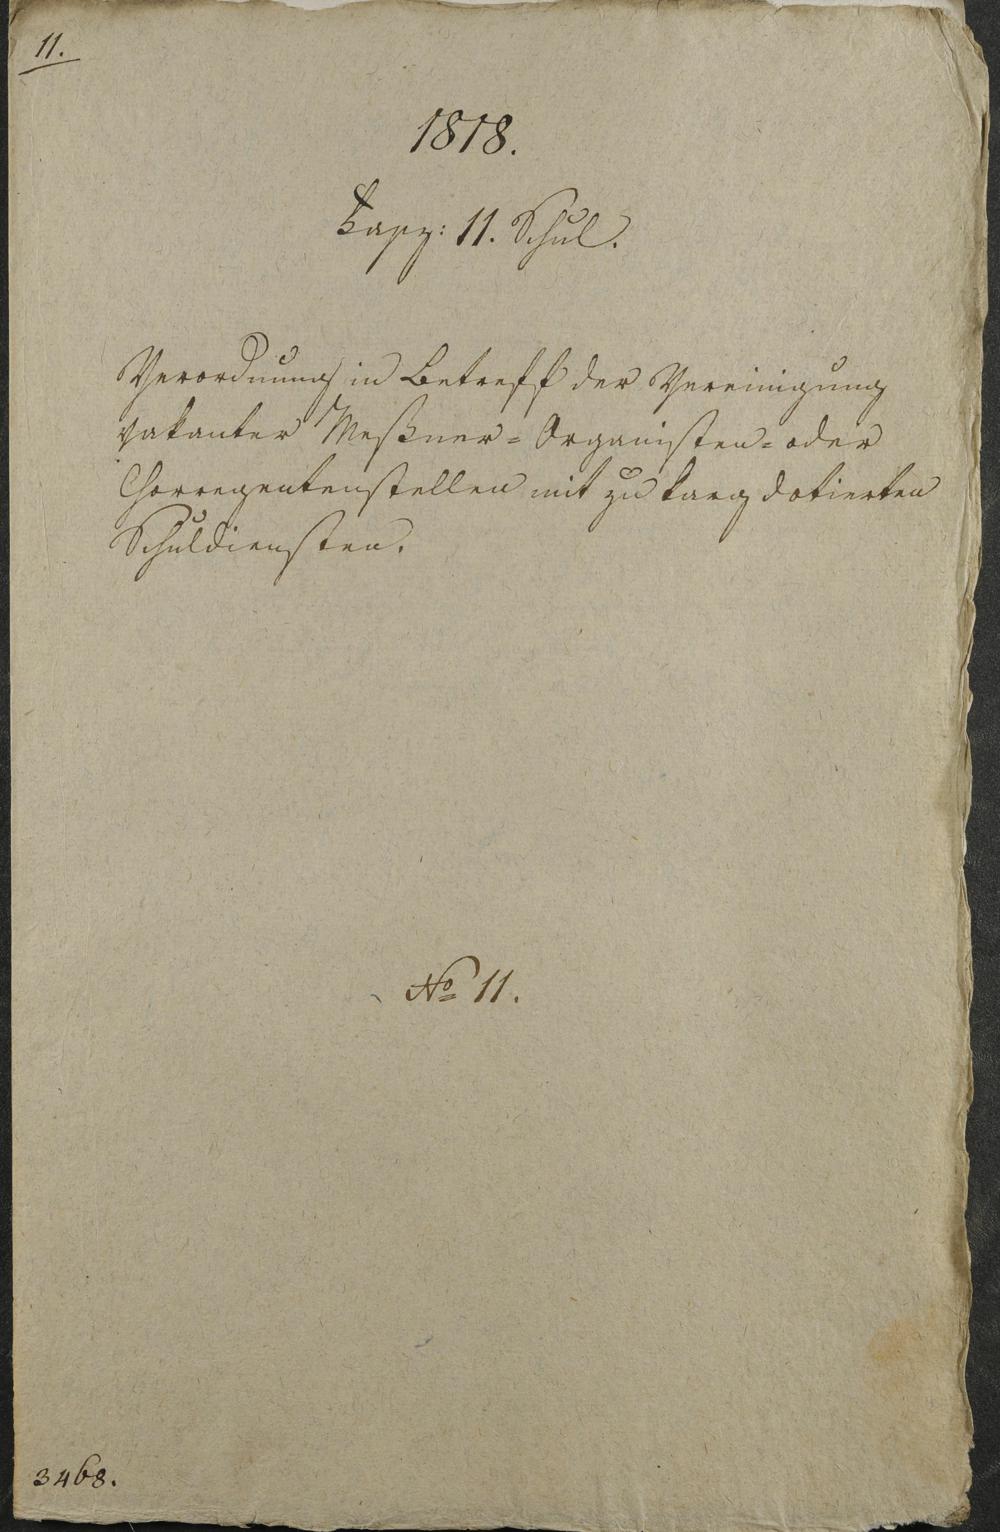 11.
1818.
Kapz: 11. Schul.
Verordnung in Betreff der Vereinigung
vakanter Meßner= Organisten= oder
Chorregentenstellen mit zu karg dotierten
Schuldiensten.
No 11.
3468.